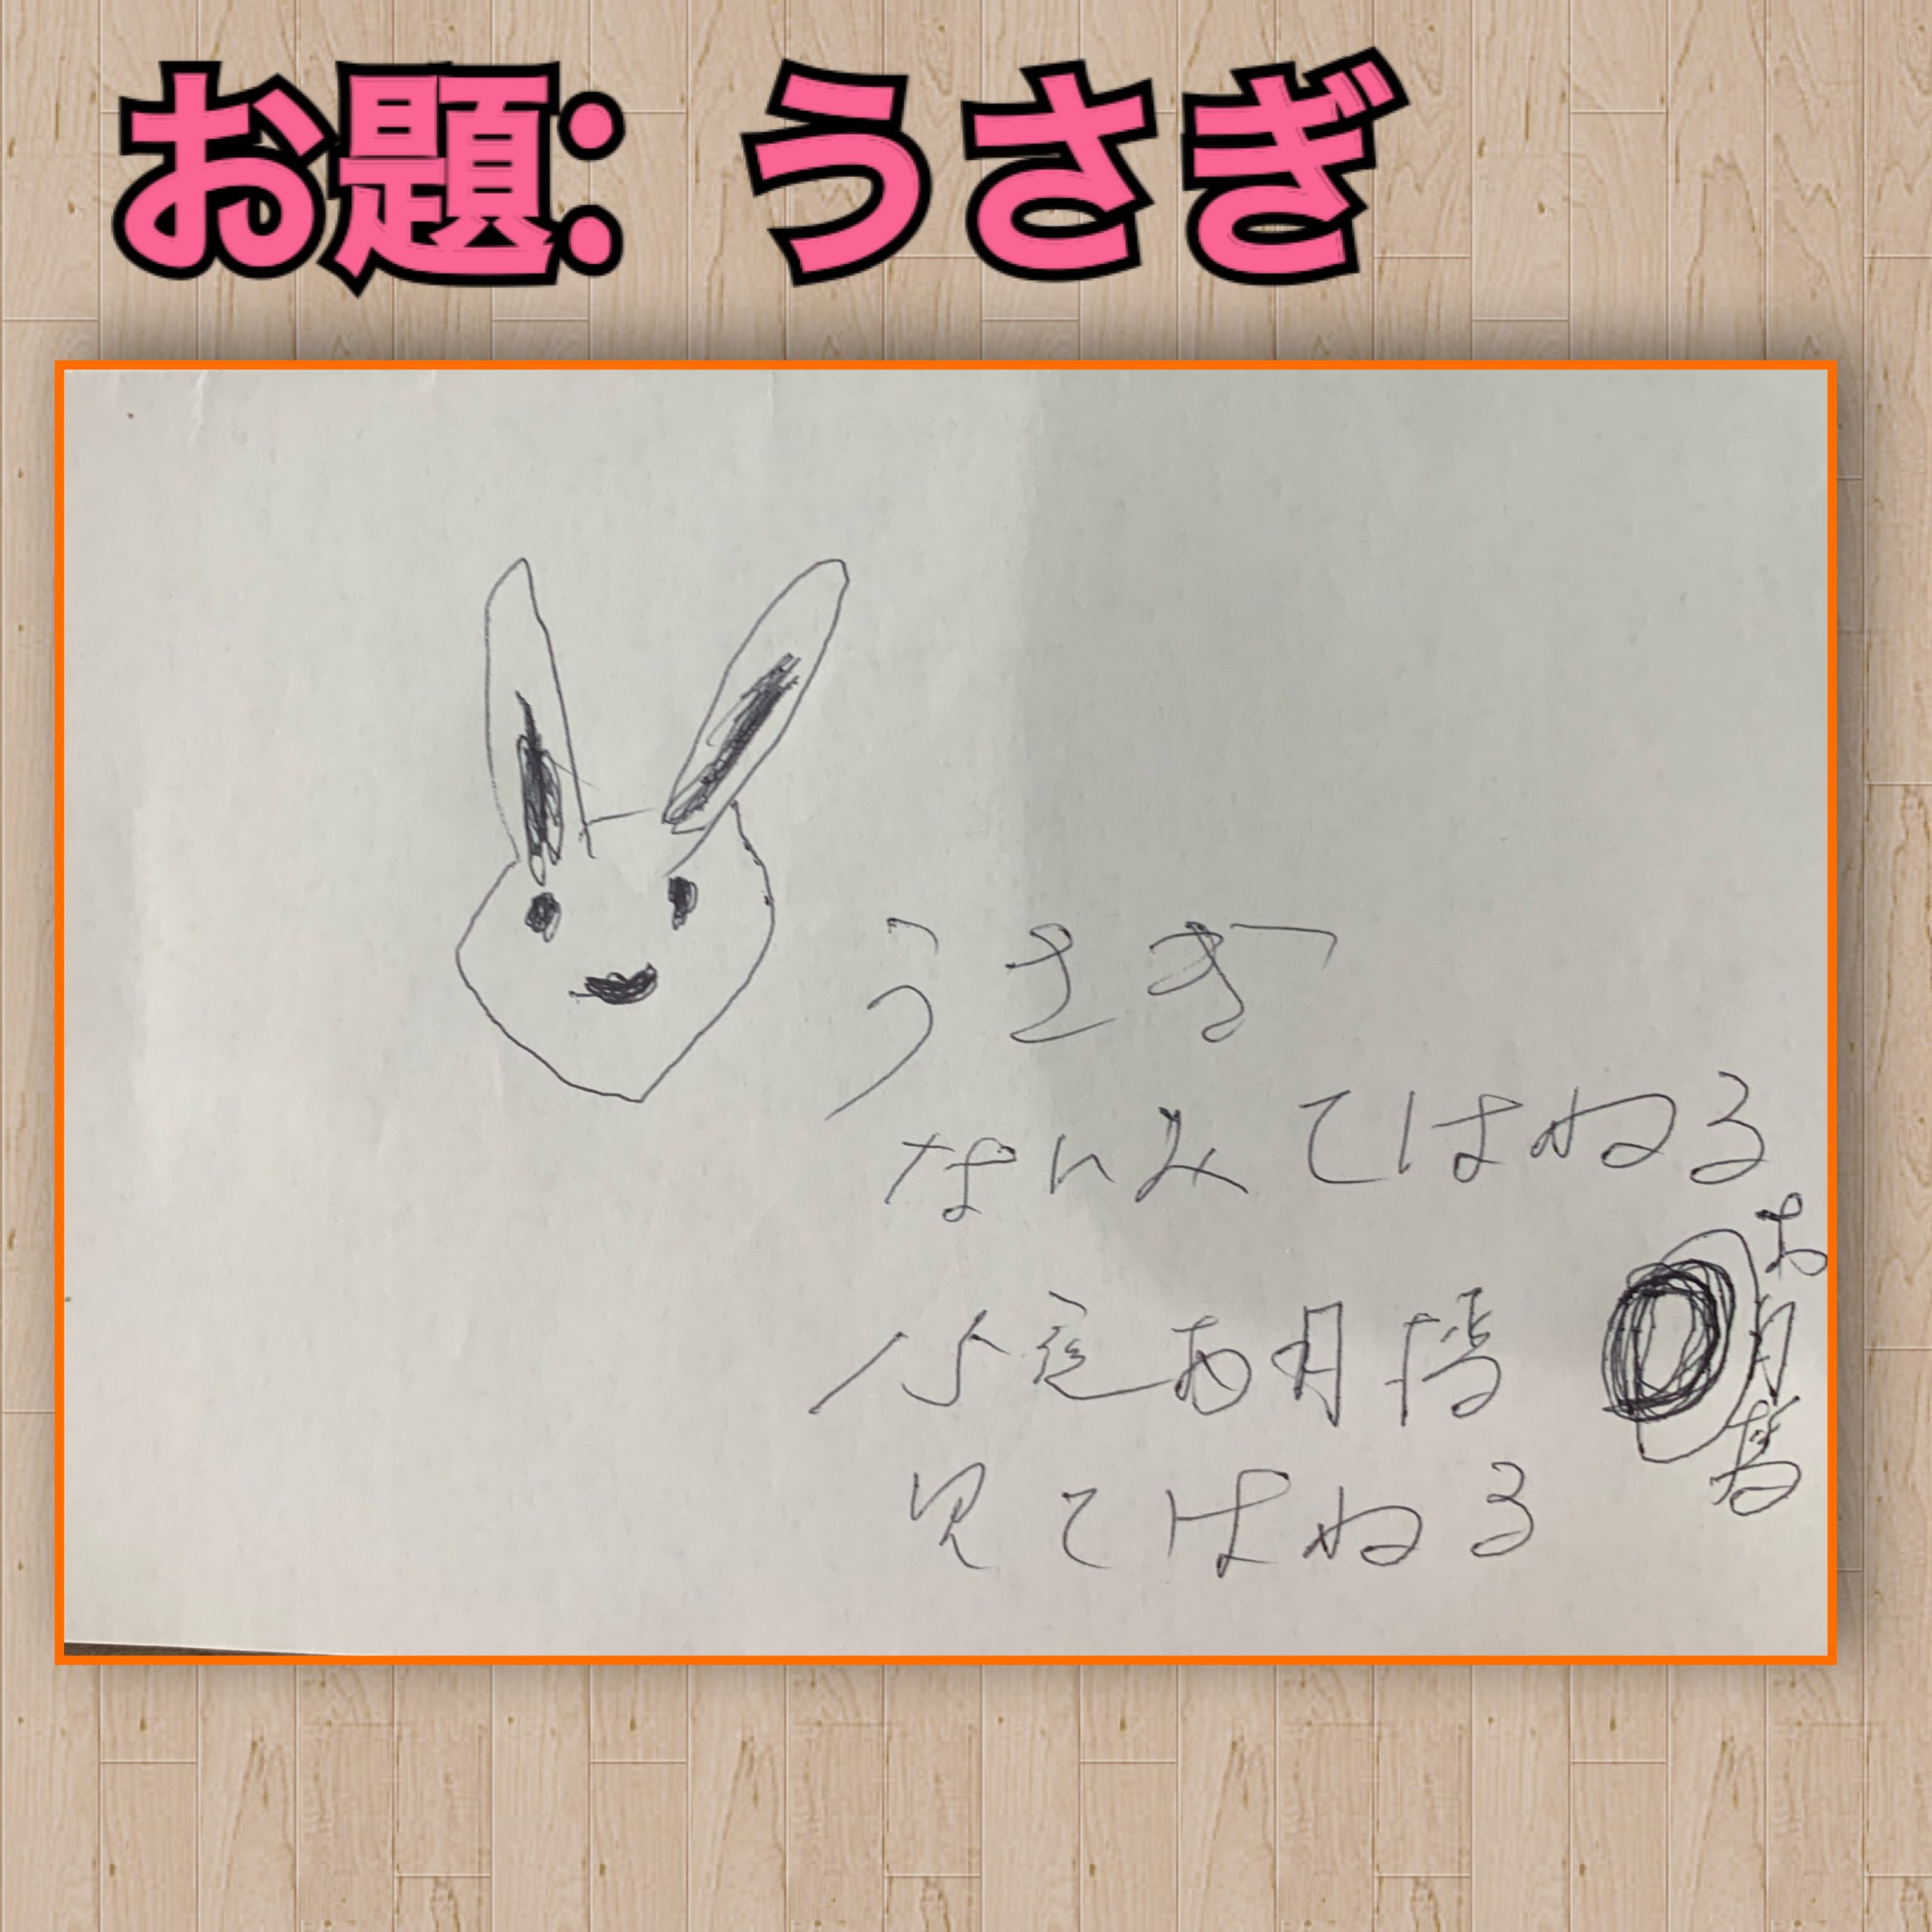 お題: うさぎ
うさぎ
なにみてはねる
お月様
見てはねる
お月様